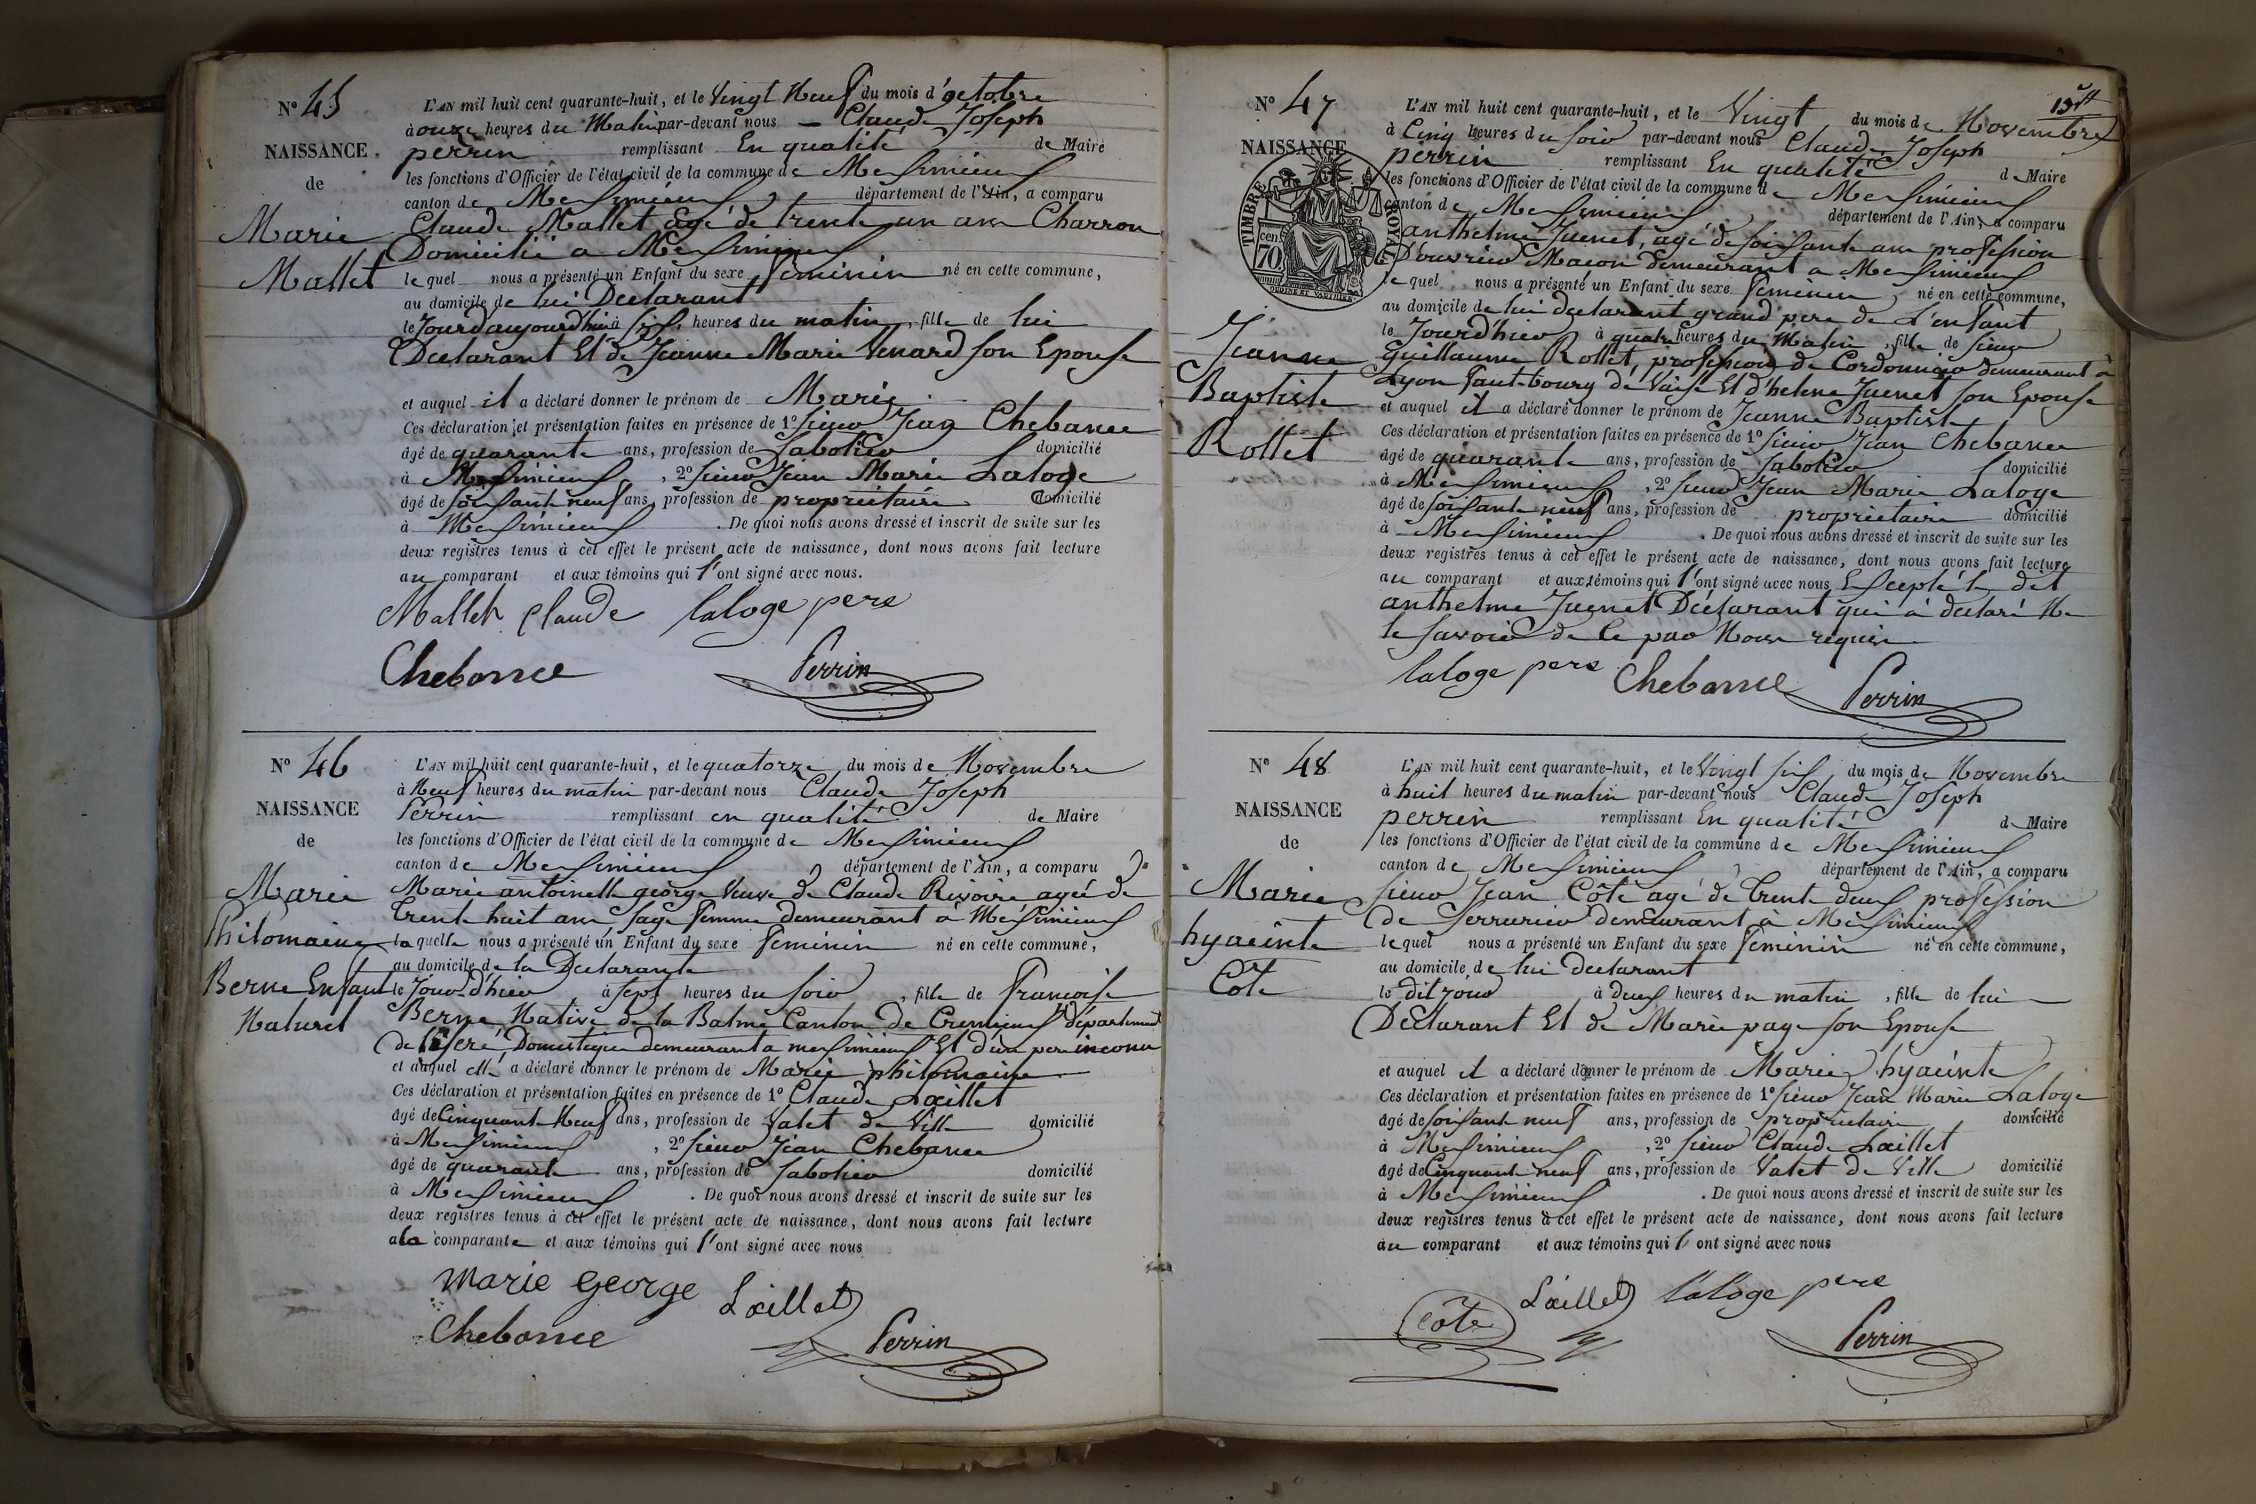 N° 45
NAISSANCE
de
Marie
Mallet
L'AN mil huit cent quarante-huit, et le Vingt Neuf du mois d'octobre
à onze heures du Matin par-devant nous — Claude Joseph
perrin remplissant En qualité de Maire
les fonctions d'Officier de l'état civil de la commune de Messimieux
canton de Messimieux, département de l'Ain, a comparu
Claude Mallet agé de trente un ans Charron
Domicilié a Messimieux
le quel nous a présenté un Enfant du sexe feminin né en cette commune,
au domicile de lui Declarant
le Jourdaujourdhui à six heures du matin, fille de lui
Declarant Et de Jeanne Marie Venard son Epouse
et auquel il a déclaré donner le prénom de Marie
Ces déclaration et présentation faites en présence de 1° sieur Jean Chebance
âgé de quarante ans, profession de Sabotier domicilié
à Messimieux, 2° sieur Jean Marie Laloge
âgé de soissante neuf ans, profession de propriétaire domicilié
à Messimieux. De quoi nous avons dressé et inscrit de suite sur les
deux registres tenus à cet effet le présent acte de naissance, dont nous avons fait lecture
au comparant et aux témoins qui l'ont signé avec nous.
Mallet Claude laloge pere
Chebance Perrin
N° 46
NAISSANCE
de
Marie
Philomaine
Berne Enfant
Naturel
L'AN mil huit cent quarante-huit, et le quatorze du mois de Novembre
à Neuf heures du matin par-devant nous Claude Joseph
Perrin remplissant en qualité de Maire
les fonctions d'Officier de l'état civil de la commune de Messimieux
canton de Messimieux département de l'Ain, a comparu De
Marie antoinette george Veuve de Claude Rivoire agée de
trente huit ans sage femme demeurant a Messimieux
la quelle nous a présenté un Enfant du sexe feminin né en cette commune,
au domicile de la Declarante
le Jour d'hier à sept heures du soir, fille de Françoise
Berne Native de la Balme Canton de Cremieux département
de l'isere Domestique demeurant a messimieux Et d'un pere inconu
et auquel elle a déclaré donner le prénom de Marie philomaine
Ces déclaration et présentation faites en présence de 1° Claude Lœillet
âgé de Cinquante Neuf ans, profession de Valet de Ville domicilié
à Messimieux, 2° sieur Jean Chebance
âgé de quarante ans, profession de Sabotier domicilié
à Messimieux. De quoi nous avons dressé et inscrit de suite sur les
deux registres tenus à cet effet le présent acte de naissance, dont nous avons fait lecture
a la comparante et aux témoins qui l'ont signé avec nous
Marie George Lœillet
Chebance Perrin
15
N° 47
NAISSANCE
TIMBRE ROYAL
70 cen
Jeanne
Baptiste
Rollet
L'AN mil huit cent quarante-huit, et le Vingt du mois de Novembre
à Cinq heures du soir par-devant nous Claude Joseph
perrin remplissant En qualité de Maire
les fonctions d'Officier de l'état civil de la commune de Messimieux
canton de Messimieux département de l'Ain, a comparu
anthelme Juenet, agé de soissante ans profession
D'ouvrier Macon demeurant a Messimieux
le quel nous a présenté un Enfant du sexe feminin, né en cette commune,
au domicile de lui declarant grand pere de L'enfant
le Jourd'hier à quatre heures du Matin, fille de sieur
Guillaume Rollet, profession de Cordonnier demeurant à
Lyon faut-bourg de Vaise Et d'helene Juenet son Epouse
et auquel il a déclaré donner le prénom de Jeanne Baptiste
Ces déclaration et présentation faites en présence de 1° sieur Jean Chebance
âgé de quarante ans, profession de Sabotier domicilié
à Messimieux, 2° sieur Jean Marie Laloge
âgé de soissante neuf ans, profession de propriétaire domicilié
à Messimieux. De quoi nous avons dressé et inscrit de suite sur les
deux registres tenus à cet effet le présent acte de naissance, dont nous avons fait lecture
au comparant et aux témoins qui l'ont signé avec nous Excepté le dit
anthelme Juenet Déclarant qui à declaré Ne
le savoir de ce par Nous requis
laloge pere Chebance Perrin
N° 48
NAISSANCE
de
Marie
hyacinte
Cote
L'AN mil huit cent quarante-huit, et le Vingt six du mois de Novembre
à huit heures du matin par-devant nous Claude Joseph
perrin remplissant En qualité de Maire
les fonctions d'Officier de l'état civil de la commune de Messimieux
canton de Messimieux département de l'Ain, a comparu
sieur Jean Côte agé de trente deux profession
de Serrurier demeurant à Messimieux
le quel nous a présenté un Enfant du sexe feminin né en cette commune,
au domicile de lui declarant
le dit jour à deux heures du matin, fille de lui
Déclarant Et de Marie page son Epouse
et auquel il a déclaré donner le prénom de Marie hyacinte
Ces déclaration et présentation faites en présence de 1° sieur Jean Marie Laloge
âgé de soissante neuf ans, profession de propriétaire domicilié
à Messimieux, 2° sieur Claude Lœillet
âgé de Cinquante neuf ans, profession de Valet de Ville domicilié
à Messimieux. De quoi nous avons dressé et inscrit de suite sur les
deux registres tenus à cet effet le présent acte de naissance, dont nous avons fait lecture
au comparant et aux témoins qui l'ont signé avec nous
Lœillet laloge pere
Côte Perrin